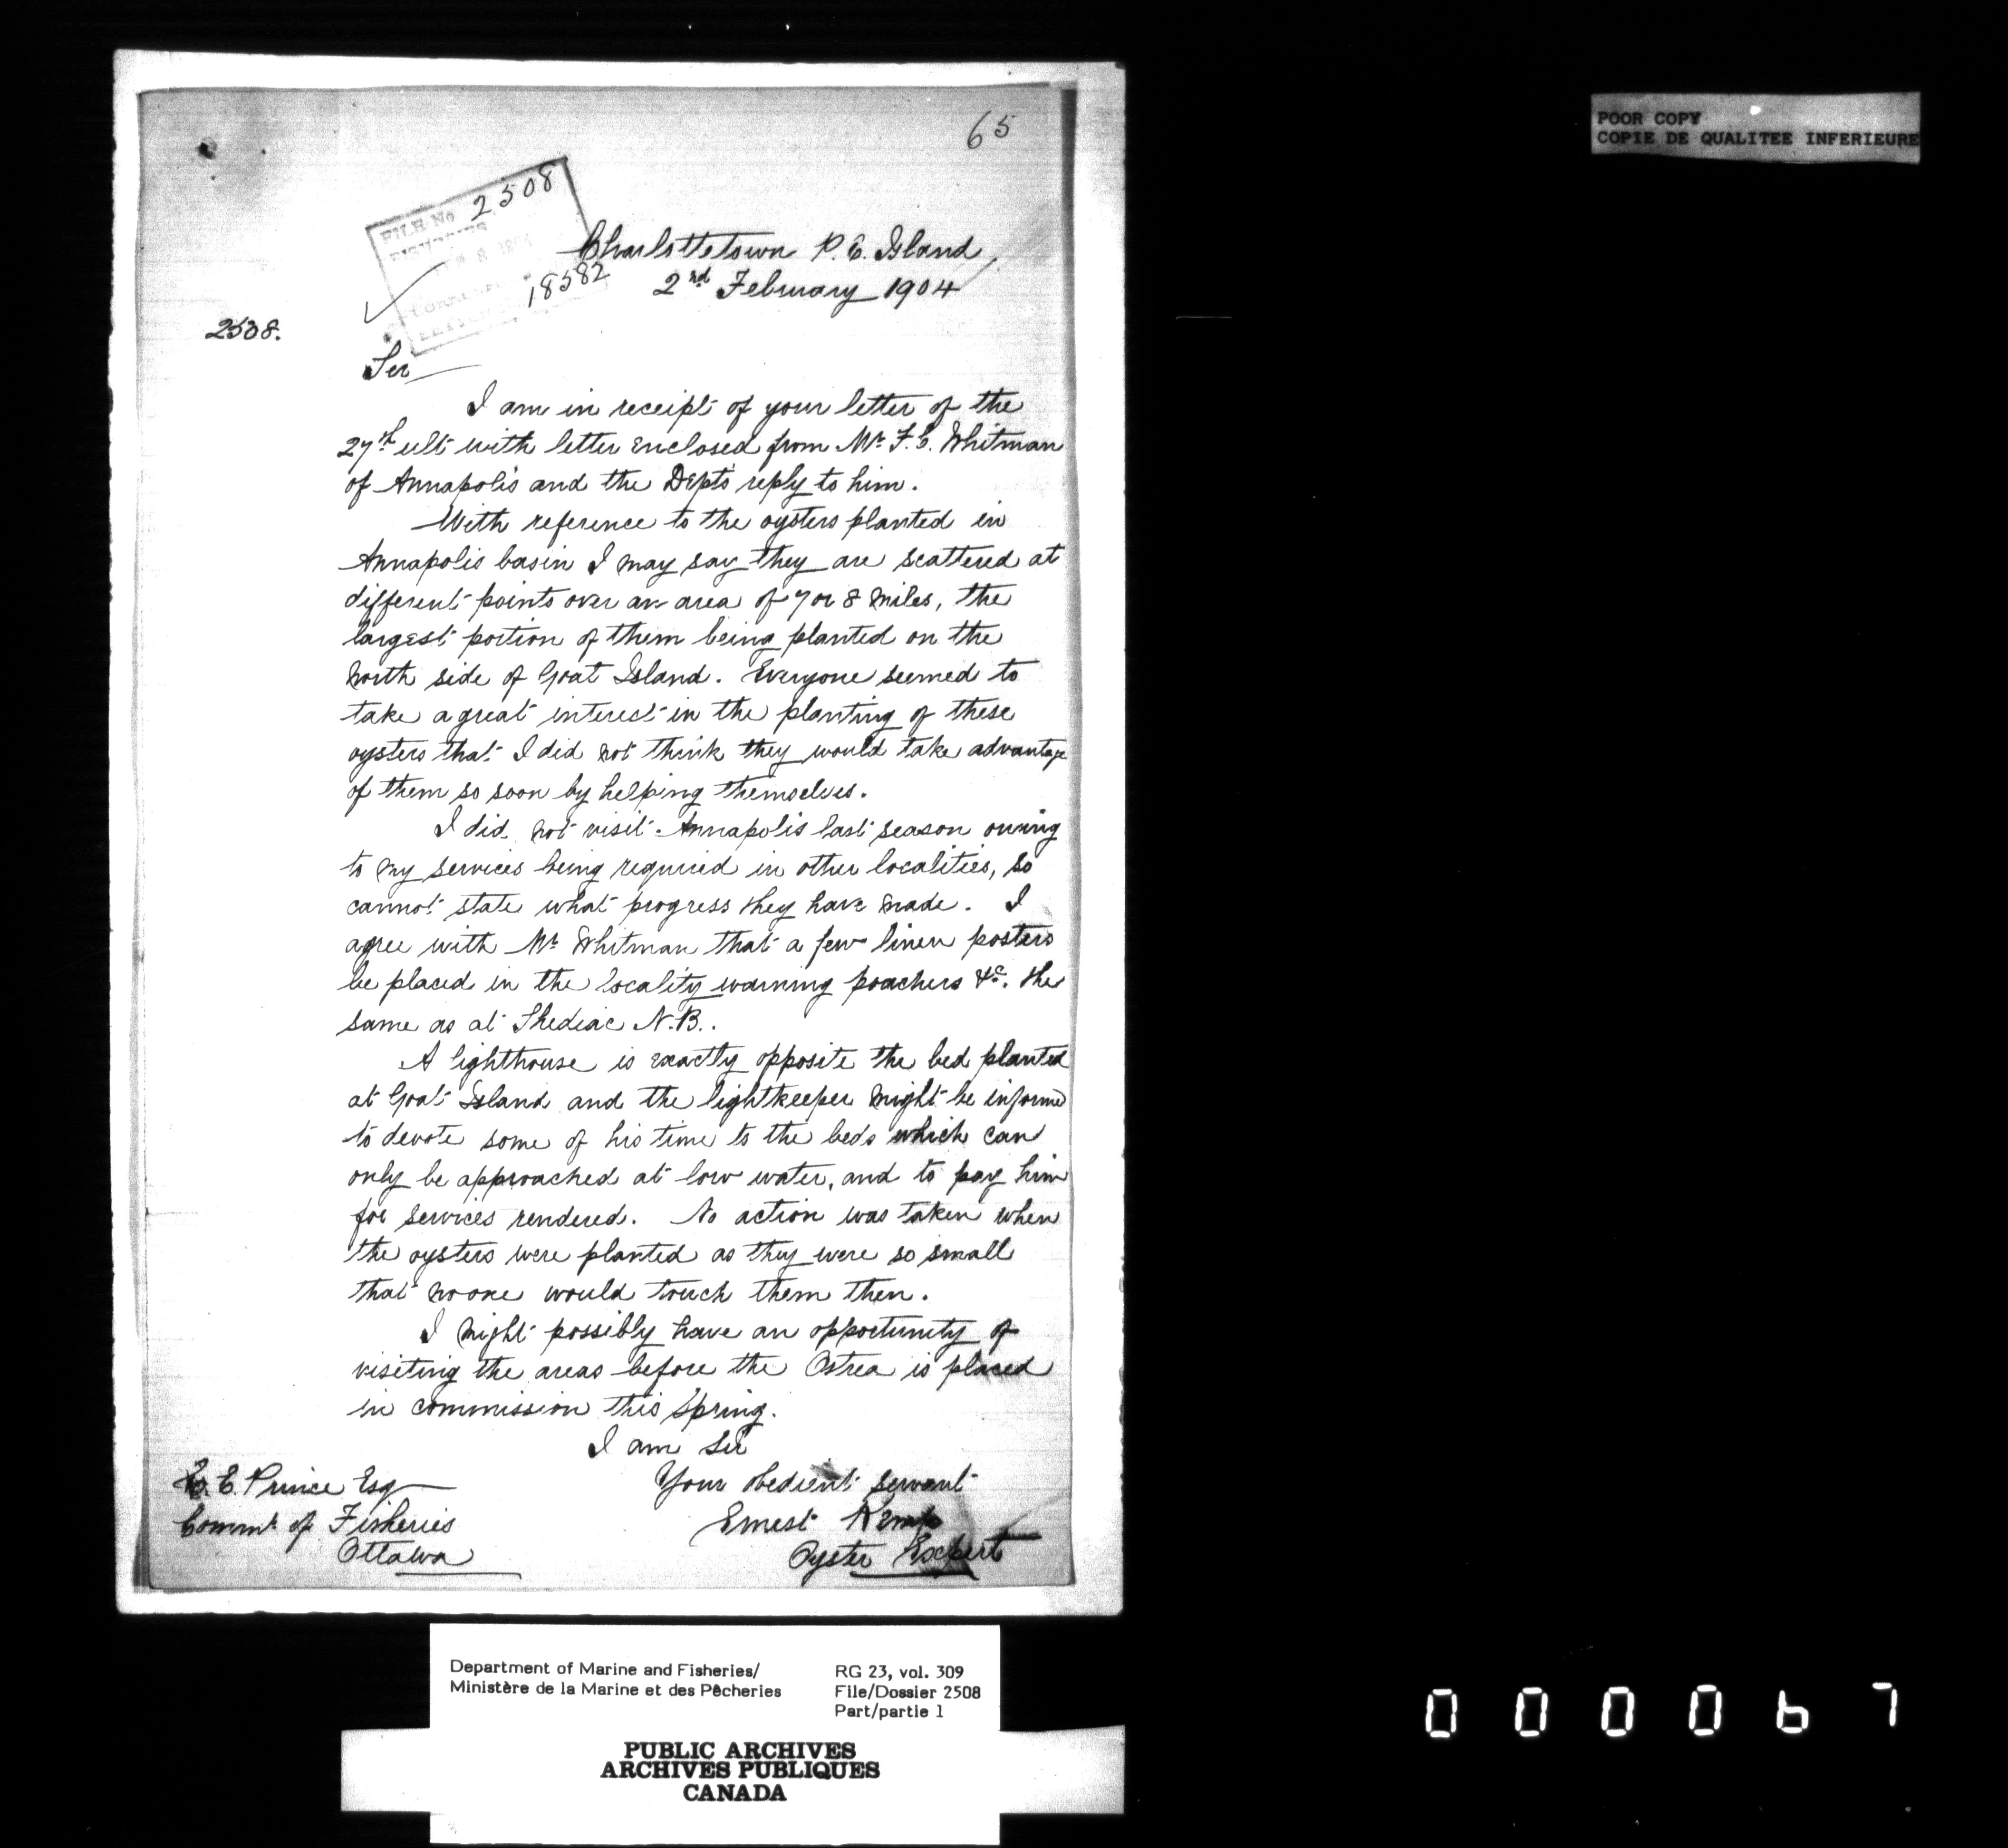 65
POOR COPY
COPIE DE QUALITEE INFERIEURE
FILE No 2508
FISHERIES
18582
Charlottetown P. E. Island
2nd February 1904
2508.
Sir
I am in receipt of your letter of the
27th ult with letter enclosed from Mr F. C. Whitman
of Annapolis and the Dept's reply to him.
With reference to the oysters planted in
Annapolis basin I may say they are scattered at
different points over an area of 7 or 8 miles, the
largest portion of them being planted on the
North side of Goat Island. Everyone seemed to
take a great interest in the planting of these
oysters that I did not think they would take advantage
of them so soon by helping themselves.
I did not visit Annapolis last season owing
to my services being required in other localities, so
cannot state what progress they have made. I
agree with Mr Whitman that a few linen posters
be placed in the locality warning poachers &c. the
same as at Shediac N.B..
A lighthouse is exactly opposite the bed planted
at Goat Island and the lightkeeper might be informed
to devote some of his time to the beds which can
only be approached at low water, and to pay him
for services rendered. No action was taken when
the oysters were planted as they were so small
that no one would touch them then.
I might possibly have an opportunity of
visiting the areas before the Ostrea is placed
in commission this Spring.
I am Sir
Your obedient servant
Ernest Kemp
Oyster Expert
E. E. Prince Esq
Commr of Fisheries
Ottawa
Department of Marine and Fisheries/
Ministère de la Marine et des Pêcheries
RG 23, vol. 309
File/Dossier 2508
Part/partie 1
PUBLIC ARCHIVES
ARCHIVES PUBLIQUES
CANADA
000067